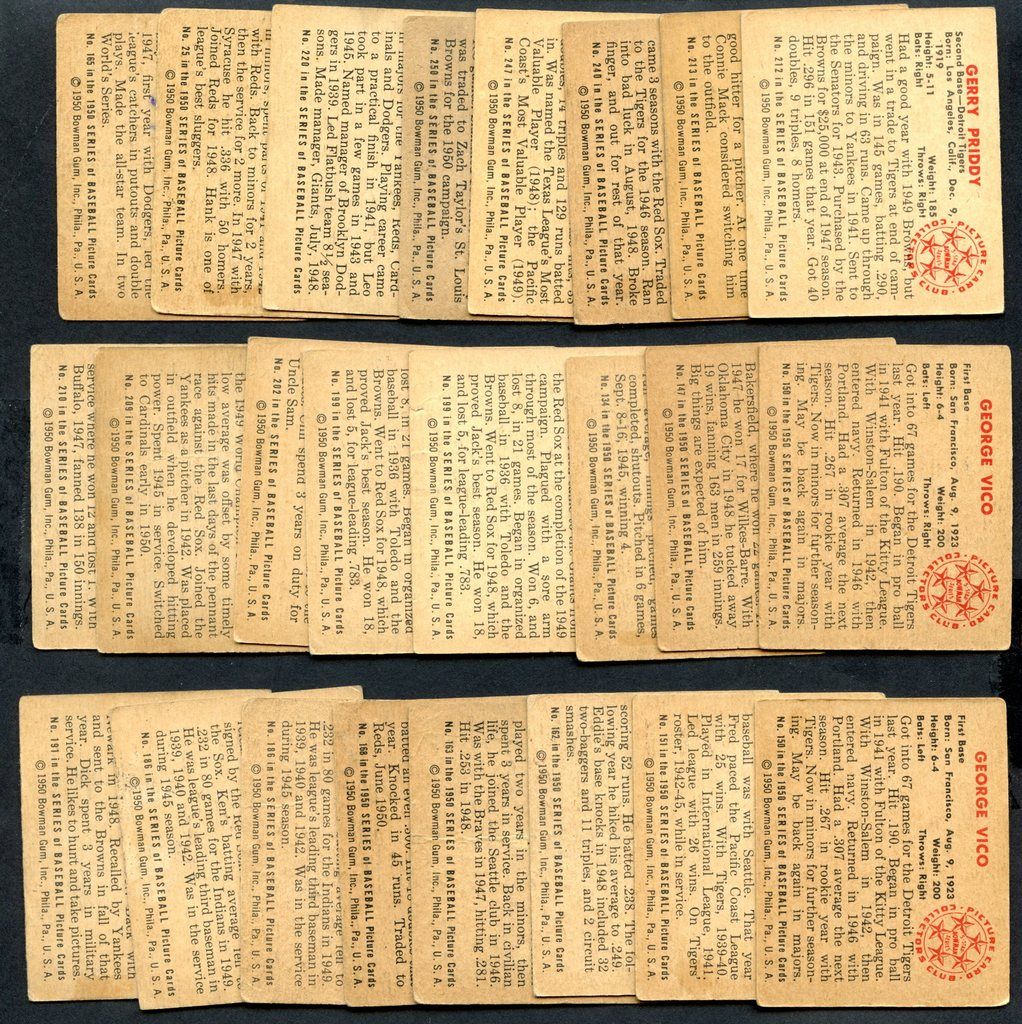 GERRY PRIDDY
Second Base—Detroit Tigers
Born: Los Angeles, Calif., Dec. 9,
1919
Height: 5-11 Weight: 185
Bats: Right Throws: Right
Had a good year with 1949 Browns, but
went in a trade to Tigers at end of cam-
paign. Was in 145 games, batting .290,
and driving in 63 runs. Came up through
the minors to Yankees in 1941. Sent to
the Senators for 1943. Purchased by the
Browns for $25,000 at end of 1947 season.
Hit .296 in 151 games that year. Got 40
doubles, 9 triples, 8 homers.
No. 212 in the SERIES of BASEBALL Picture Cards
©1950 Bowman Gum, Inc., Phila., Pa., U. S. A.
PICTURE CARD
COLLECTORS CLUB
good hitter for a pitcher. At one time
Connie Mack considered switching him
to the outfield.
No. 213 in the SERIES of BASEBALL Picture Cards
©1950 Bowman Gum, Inc., Phila., Pa., U. S. A.
came 3 seasons with the Red Sox. Traded
to the Tigers for the 1946 season. Ran
into bad luck in August 1948. Broke
finger, and out for rest of that year.
No. 240 in the SERIES of BASEBALL Picture Cards
©1950 Bowman Gum, Inc., Phila., Pa., U. S. A.
doubles, 14 triples and 129 runs batted
in. Was named the Texas League's Most
Valuable Player (1948); the Pacific
Coast's Most Valuable Player (1949).
No. 247 in the SERIES of BASEBALL Picture Cards
©1950 Bowman Gum, Inc., Phila., Pa., U. S. A.
was traded to Zach Taylor's St. Louis
Browns for the 1950 campaign.
No. 250 in the SERIES of BASEBALL Picture Cards
©1950 Bowman Gum, Inc., Phila., Pa., U. S. A.
in majors for the Yankees, Reds, Card-
inals and Dodgers. Playing career came
to a practical finish in 1941, but Leo
took part in a few games in 1943 and
1945. Named manager of Brooklyn Dod-
gers in 1939. Led Flatbush team 8½ sea-
sons. Made manager, Giants, July, 1948.
No. 220 in the SERIES of BASEBALL Picture Cards
©1950 Bowman Gum, Inc., Phila., Pa., U. S. A.
with Reds. Back to minors for 2 years,
then the service for 2 more. In 1947 with
Syracuse he hit .336 with 50 homers.
Joined Reds for 1948. Hank is one of
league's best sluggers.
No. 25 in the 1950 SERIES of BASEBALL Picture Cards
©1950 Bowman Gum, Inc., Phila., Pa., U. S. A.
1947, first year with Dodgers, led the
league's catchers in putouts and double
plays. Made the all-star team. In two
World's Series.
No. 165 in the 1950 SERIES of BASEBALL Picture Cards
©1950 Bowman Gum, Inc., Phila., Pa., U. S. A.
GEORGE VICO
First Base
Born: San Francisco, Aug. 9, 1923
Height: 6-4 Weight: 200
Bats: Left Throws: Right
Got into 67 games for the Detroit Tigers
last year. Hit .190. Began in pro ball
in 1941 with Fulton of the Kitty League.
With Winston-Salem in 1942, then
entered navy. Returned in 1946 with
Portland. Had a .307 average the next
season. Hit .267 in rookie year with
Tigers. Now in minors for further season-
ing. May be back again in majors.
No. 150 in the 1950 SERIES of BASEBALL Picture Cards
©1950 Bowman Gum, Inc., Phila., Pa., U. S. A.
PICTURE CARD
COLLECTORS CLUB
Bakersfield, where he won 22 games. With
1947 he won 17 for Wilkes-Barre. With
Oklahoma City in 1948 he tucked away
19 wins, fanning 163 men in 259 innings.
Big things are expected of him.
No. 147 in the 1950 SERIES of BASEBALL Picture Cards
©1950 Bowman Gum, Inc., Phila., Pa., U. S. A.
completed, shutouts. Pitched in 4 games,
Sept. 8-16, 1945, winning 4.
No. 134 in the 1950 SERIES of BASEBALL Picture Cards
©1950 Bowman Gum, Inc., Phila., Pa., U. S. A.
the Red Sox at the completion of the 1949
campaign. Plagued with a sore arm
through most of the season. Won 6, and
lost 8, in 21 games. Began in organized
baseball in 1936 with Toledo and the
Browns. Went to Red Sox for 1948, which
proved Jack's best season. He won 18,
and lost 5, for league-leading .783.
©1950 Bowman Gum, Inc., Phila., Pa., U. S. A.
lost 8, in 21 games. Began in organized
baseball in 1936 with Toledo and the
Browns. Went to Red Sox for 1948, which
proved Jack's best season. He won 18,
and lost 5, for league-leading .783.
No. 199 in the SERIES of BASEBALL Picture Cards
©1950 Bowman Gum, Inc., Phila., Pa., U. S. A.
spend 3 years on duty for
Uncle Sam.
No. 202 in the SERIES of BASEBALL Picture Cards
©1950 Bowman Gum, Inc., Phila., Pa., U. S. A.
low average was offset by some timely
hits made in the last days of the pennant
race against the Red Sox. Joined the
Yankees as a pitcher in 1942. Was placed
in outfield when he developed hitting
power. Spent 1945 in service. Switched
to Cardinals early in 1950.
No. 209 in the SERIES of BASEBALL Picture Cards
©1950 Bowman Gum, Inc., Phila., Pa., U. S. A.
service where he won 12 and lost 1. With
Buffalo, 1947, fanned 138 in 150 innings.
No. 210 in the SERIES of BASEBALL Picture Cards
©1950 Bowman Gum, Inc., Phila., Pa., U. S. A.
GEORGE VICO
First Base
Born: San Francisco, Aug. 9, 1923
Height: 6-4 Weight: 200
Bats: Left Throws: Right
Got into 67 games for the Detroit Tigers
last year. Hit .190. Began in pro ball
in 1941 with Fulton of the Kitty League.
With Winston-Salem in 1942, then
entered navy. Returned in 1946 with
Portland. Had a .307 average the next
season. Hit .267 in rookie year with
Tigers. Now in minors for further season-
ing. May be back again in majors.
No. 150 in the 1950 SERIES of BASEBALL Picture Cards
©1950 Bowman Gum, Inc., Phila., Pa., U. S. A.
PICTURE CARD
COLLECTORS CLUB
baseball was with Seattle. That year
Fred paced the Pacific Coast League
with 25 wins. With Tigers, 1939-40.
Played in International League, 1941.
Led league with 26 wins. On Tigers'
roster, 1942-45, while in service.
No. 151 in the 1950 SERIES of BASEBALL Picture Cards
©1950 Bowman Gum, Inc., Phila., Pa., U. S. A.
scoring 52 runs. He batted .238. The fol-
lowing year he hiked his average to .249.
Eddie's base knocks in 1948 included 32
two-baggers and 11 triples, and 2 circuit
smashes.
No. 162 in the 1950 SERIES of BASEBALL Picture Cards
©1950 Bowman Gum, Inc., Phila., Pa., U. S. A.
played two years in the minors, then
spent 3 years in service. Back in civilian
life, he joined the Seattle club in 1946.
Was with the Braves in 1947, hitting .281.
Hit .253 in 1948.
No. 163 in the 1950 SERIES of BASEBALL Picture Cards
©1950 Bowman Gum, Inc., Phila., Pa., U. S. A.
year. Knocked in 45 runs. Traded to
Reds, June 1950.
No. 168 in the 1950 SERIES of BASEBALL Picture Cards
©1950 Bowman Gum, Inc., Phila., Pa., U. S. A.
.232 in 80 games for the Indians in 1949.
He was league's leading third baseman in
1939, 1940 and 1942. Was in the service
during 1945 season.
No. 186 in the SERIES of BASEBALL Picture Cards
©1950 Bowman Gum, Inc., Phila., Pa., U. S. A.
signed by the Red Sox
the Sox. Ken's batting average fell to
.232 in 80 games for the Indians in 1949.
He was league's leading third baseman in
1939, 1940 and 1942. Was in the service
during 1945 season.
No. 186 in the SERIES of BASEBALL Picture Cards
©1950 Bowman Gum, Inc., Phila., Pa., U. S. A.
Newark in 1948. Recalled by Yankees
and sent to the Browns in fall of that
year. Dick spent 3 years in military
service. He likes to hunt and take pictures.
No. 191 in the SERIES of BASEBALL Picture Cards
©1950 Bowman Gum, Inc., Phila., Pa., U. S. A.